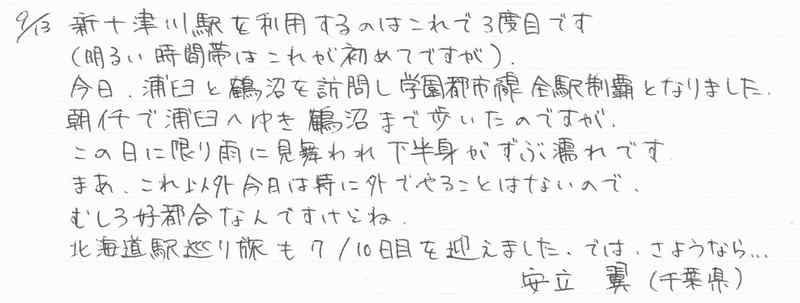 9/13 新十津川駅を利用するのはこれで3度目です
(明るい時間帯はこれが初めてですが).
今日、浦臼と鶴沼を訪問し学園都市線全駅制覇となりました.
朝イチで浦臼へゆき鶴沼まで歩いたのですが、
この日に限り雨に見舞われ下半身がずぶ濡れです
まあ、これ以外今日は特に外でやることはないので、
むしろ好都合なんですけどね.
北海道駅巡り旅も7/10日目を迎えました.では、さようなら…
安立 翼(千葉県)